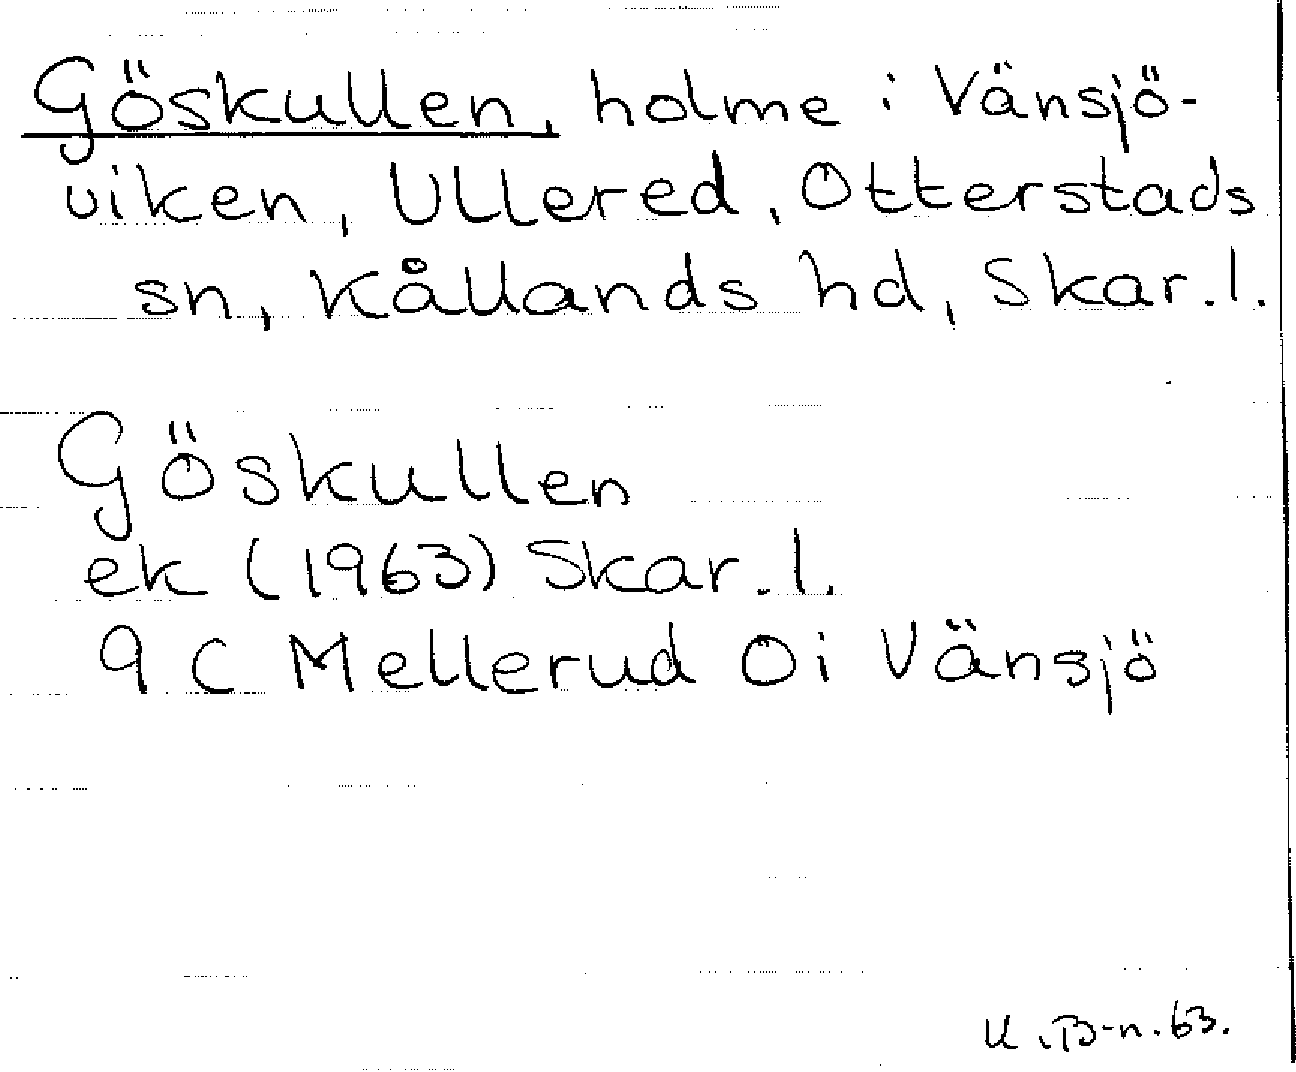 Göskullen, holme i Vänsjö-
viken, Ullered, Otterstads
sn, Kållands hd, Skar.l.
Göskullen
ek (1963) Skar.l.
9 C Mellerud Ö i Vänsjö
U.B-n.63.